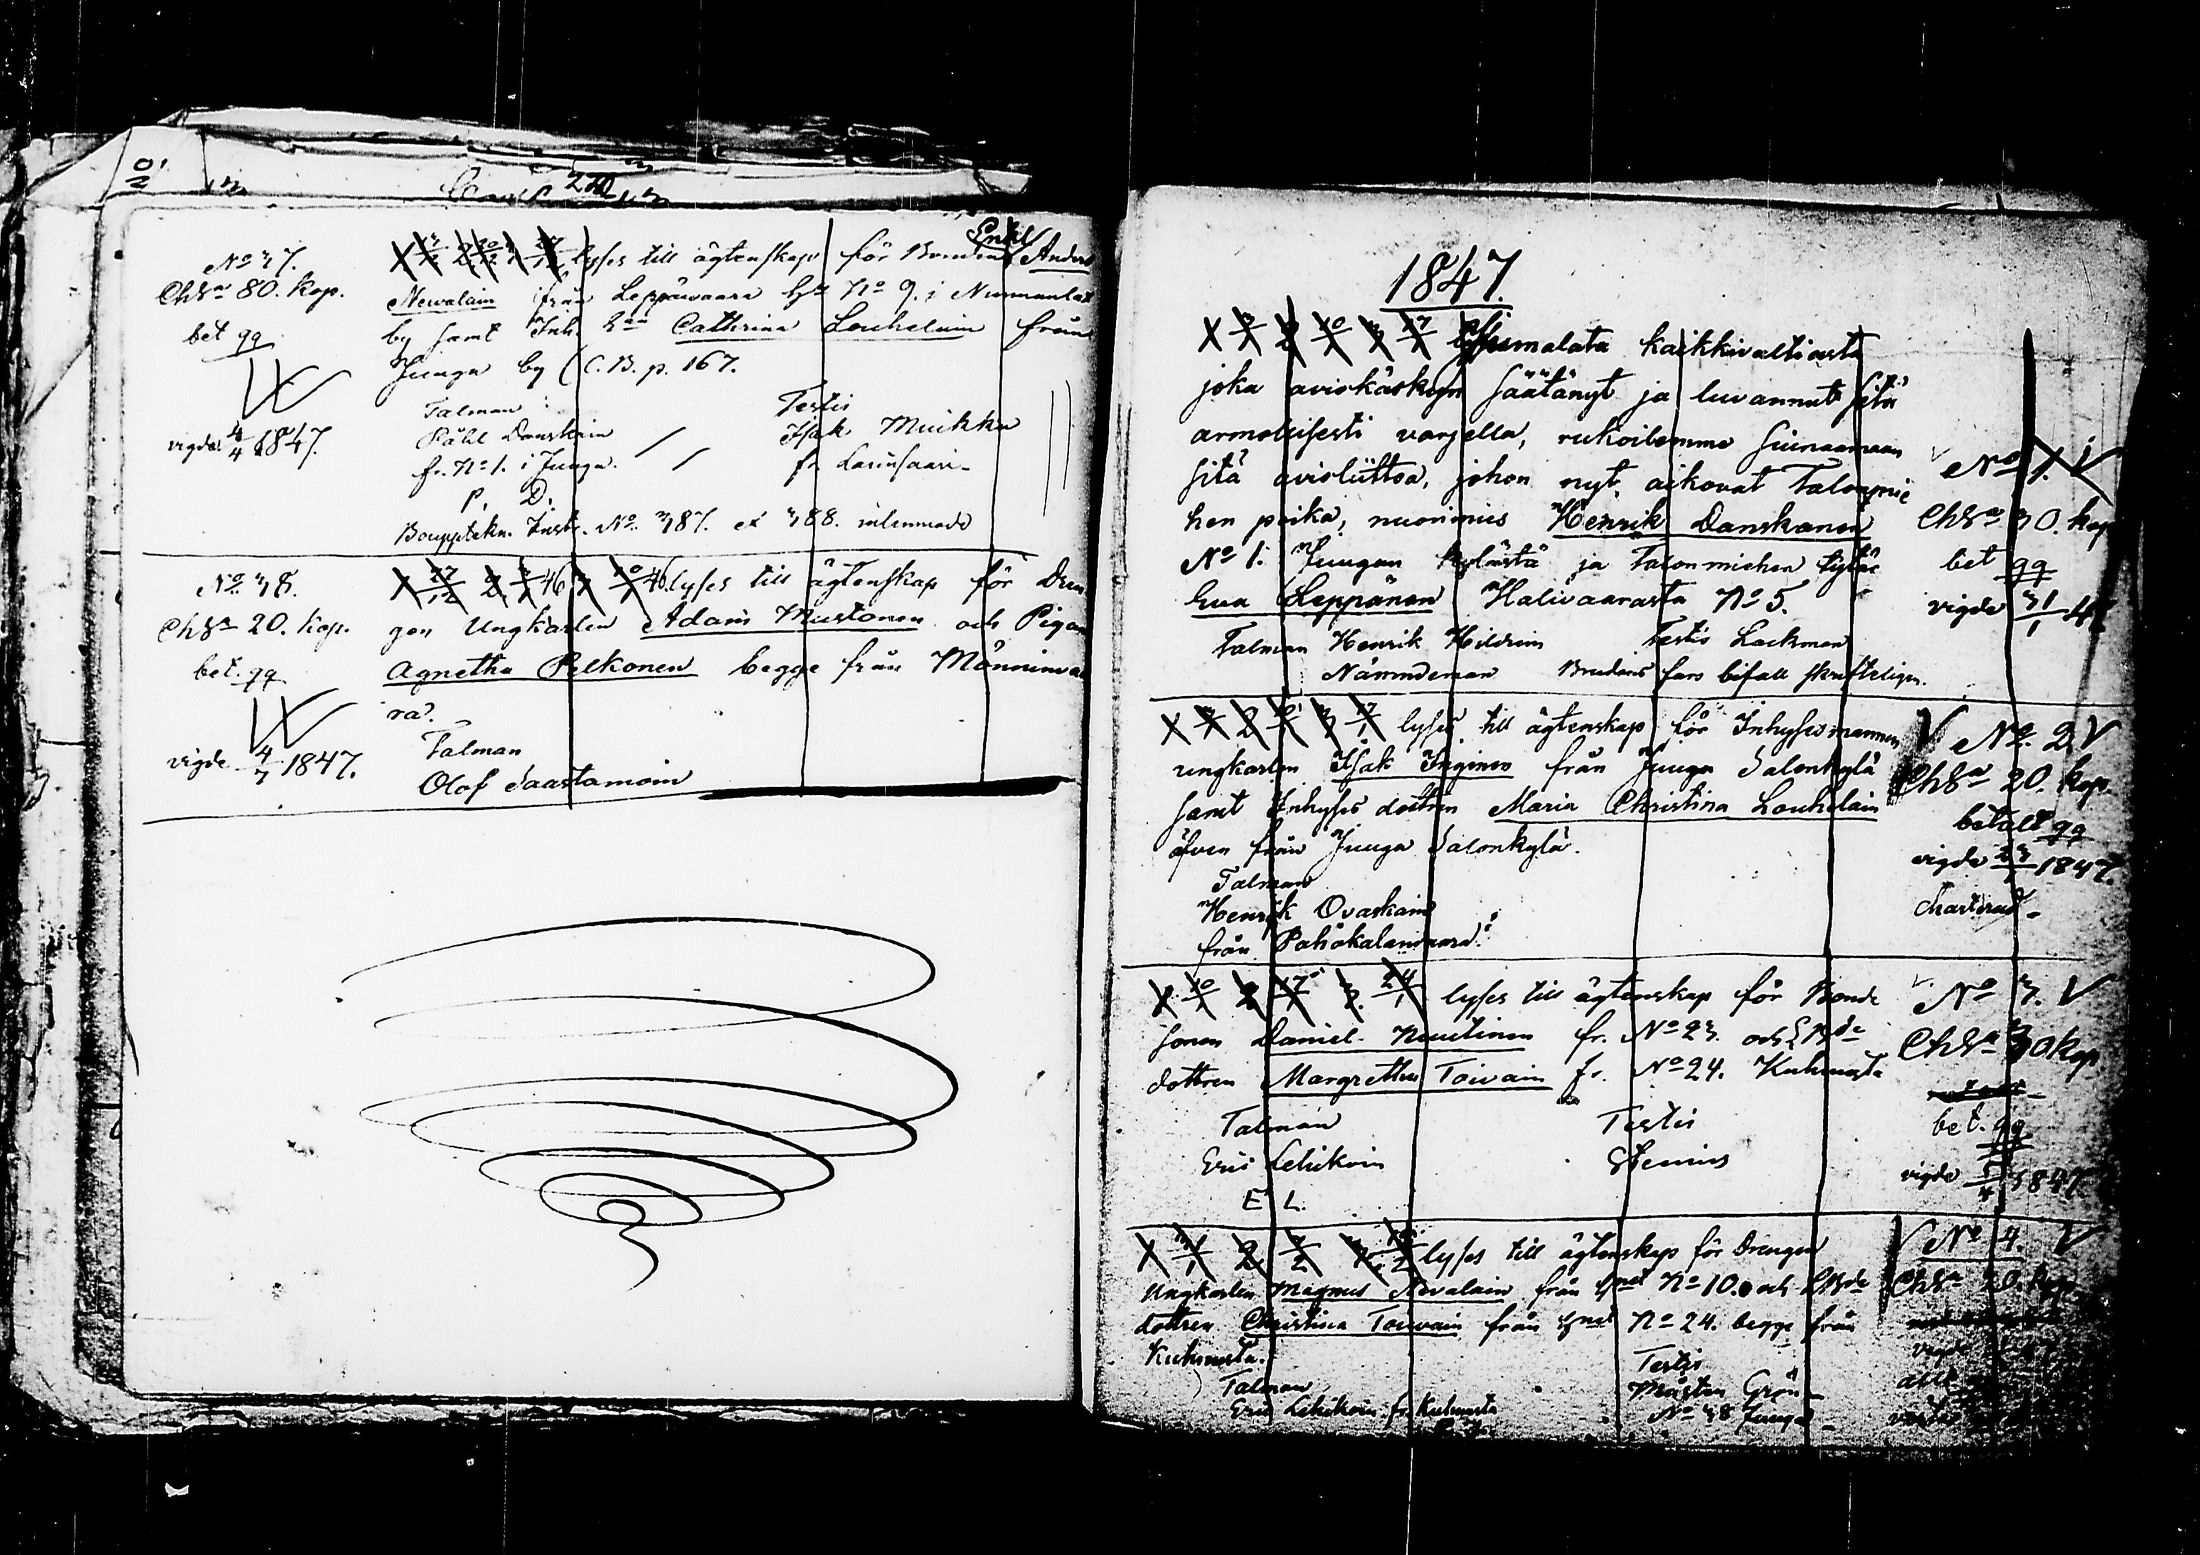 No 37.
ChSa 80. kop.
bet gg
vigde 4/4 1847.
lyses till ägtenskap för Bonden Enkl. Anders
Newalain från Leppäwaara No 9. i Nunnanlax
by samt Inh. Cathrina Louhelain från
Juuga by (C.B. p. 167.
Talman
Påhl Danskain
fr. No 1. i Juuga.
Testis
Isak Muikku
fr. Larinsaari
P. D.
Boupptekn. Instr. No. 387. et 388. inlemnade
No 38.
ChSa 20. kop.
bet. gg
vigde 4/7 1847.
X 27/12 2 3/1 46 3 10/1 46. lyses till ägtenskap för Dren
gen Ungkarlen Adam Mustonen och Pigan
Agnetha Pelkonen begge från Männinwa
ra.
Talman
Olof Saastamoin
1847.
X 3/1 2 10/1 3 17/1 kaikkivaltiasta
joka avioskäskyn säätänyt ja luvannut sitä
armollisesti varjella, rukoilemme siunaamaan
sitä avioliittoa, johon nyt aikovat Talonmie
hen poika, nuorimies Henrik Danskanen
No 1. Juugan kylästä ja talonmiehen tytär
Eva Leppänen Halivaarasta No 5.
Talman Henrik Hildrein Testis Lackman
Nämndeman Brudens fars bifall skrifteligen.
No 1.
ChSa 30. kop
bet gg
vigde 31/1 47
X 3/1 2 10/1 3 17/1 lyses till ägtenskap för Inhysesmannen
ungkarlen Isak Inginen från Juuga Salonkylä
samt Inhyses dottren Maria Christina Louhelain
äfven från Juuga Salonkylä.
Talman
Henrik Ovaskain
från
No. 2.
ChSa 20. kop.
betalt gg
vigde 1847.
X 10/1 2 17/1 3. 24/1 lyses till ägtenskap för Bonde
sonen Daniel Nuutinen fr. No 23. och Bde
dottren Margretha Toivain fr. No 24. Kuhnusta
Talman
Eric Lehikoin
E L.
Testis
Stenius
No 3.
ChSa 30 kop
bet. gg
vigde 5/4 1847
lyses till ägtenskap för Drengen
Ungkarlen Magnus Nevalain från No 10. och Bde
dottren Christina Toivain från No 24. begge från
Kuhnusta.
Talman
Eric Lehikoin fr. Kuhnusta
Testis
Mårten Grön
No 38 Juuga
No 4.
ChSa 20. kop.